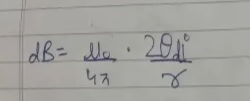 dB = μ₀/4π · 2θdi/r